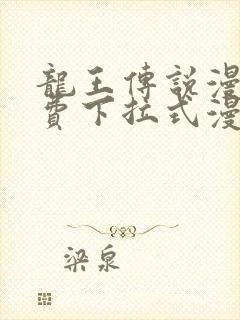 龍王傳說漫
費下拉式漫
梁泉